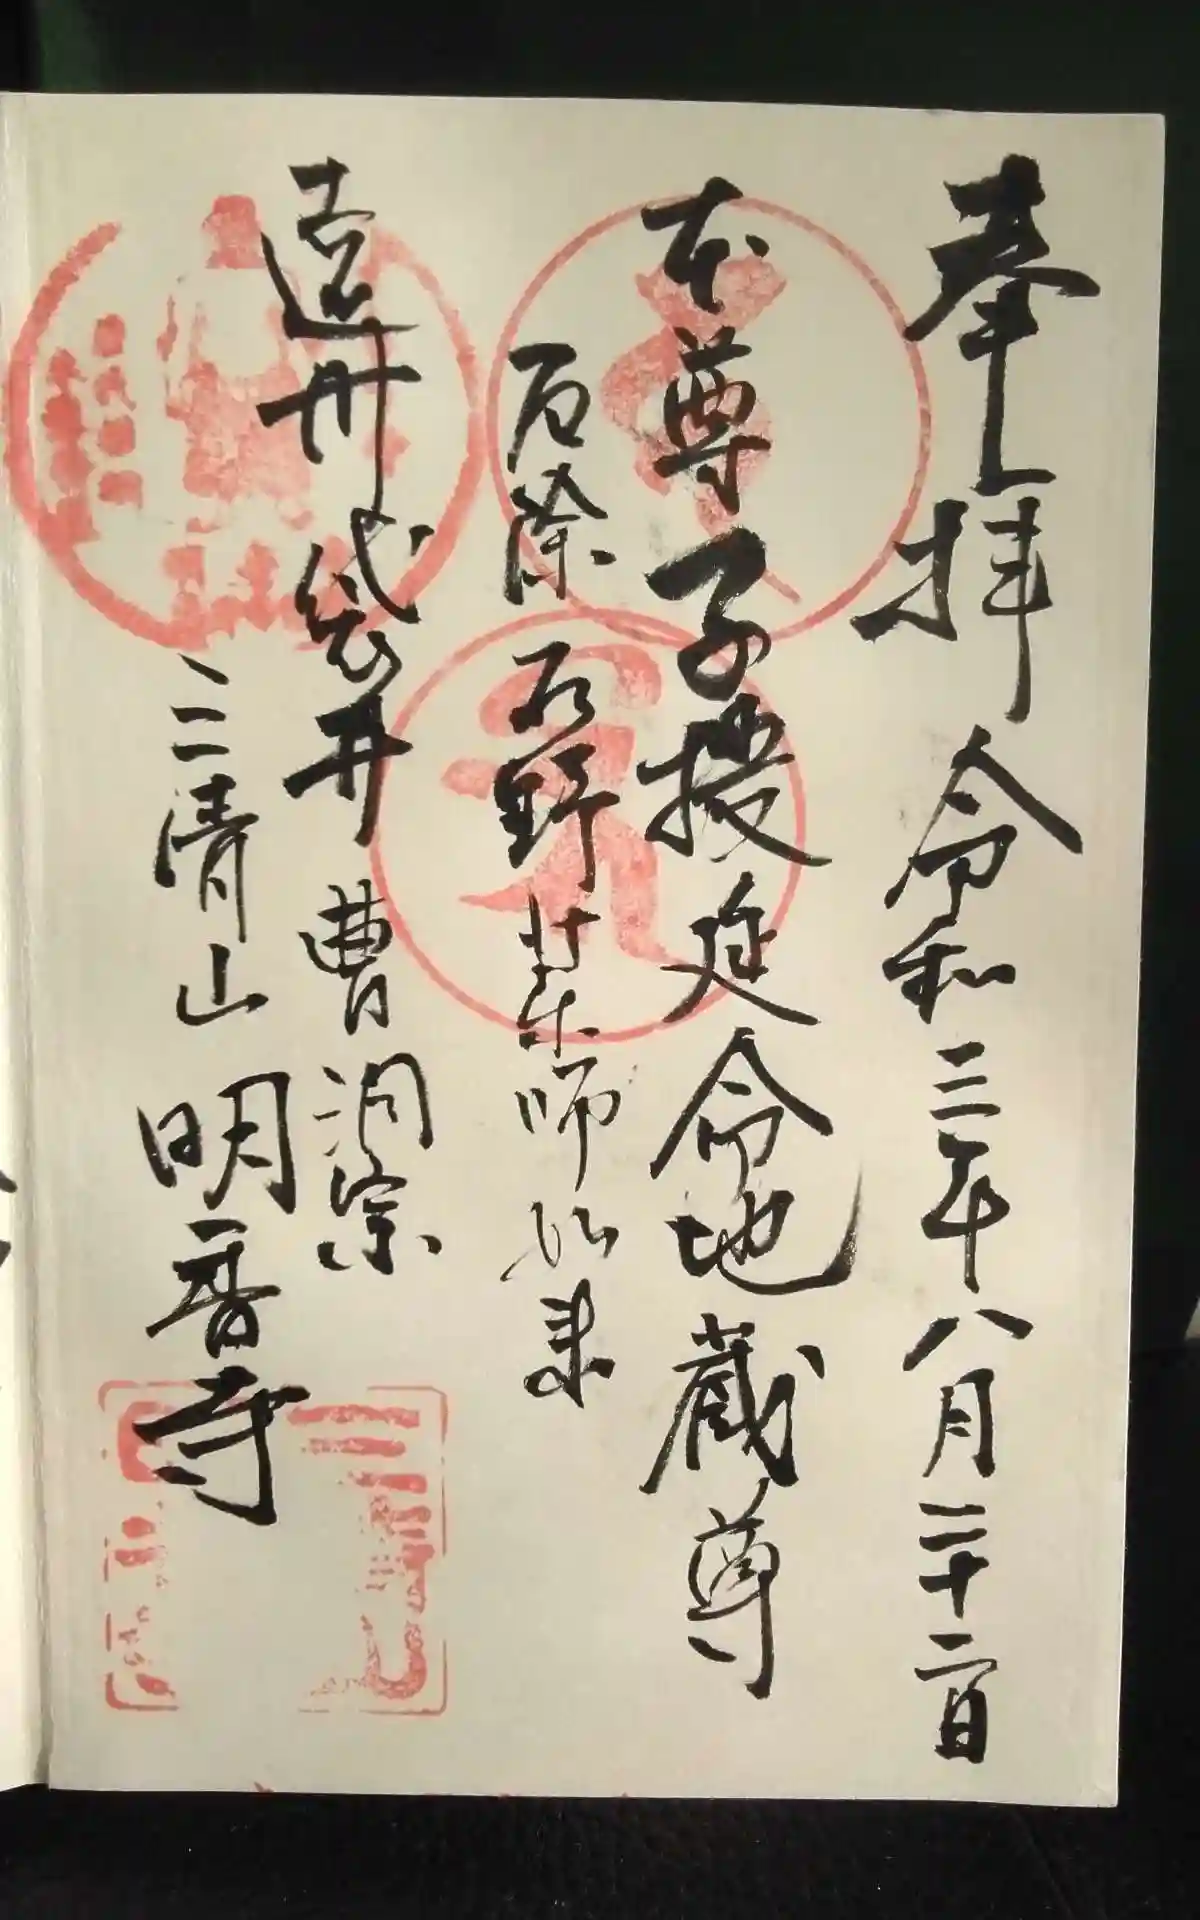 奉拝 令和三年八月二十二日
本尊 子授延命地蔵尊
厄除 石野薬師如来
遠州袋井 曹洞宗
三清山 明音寺